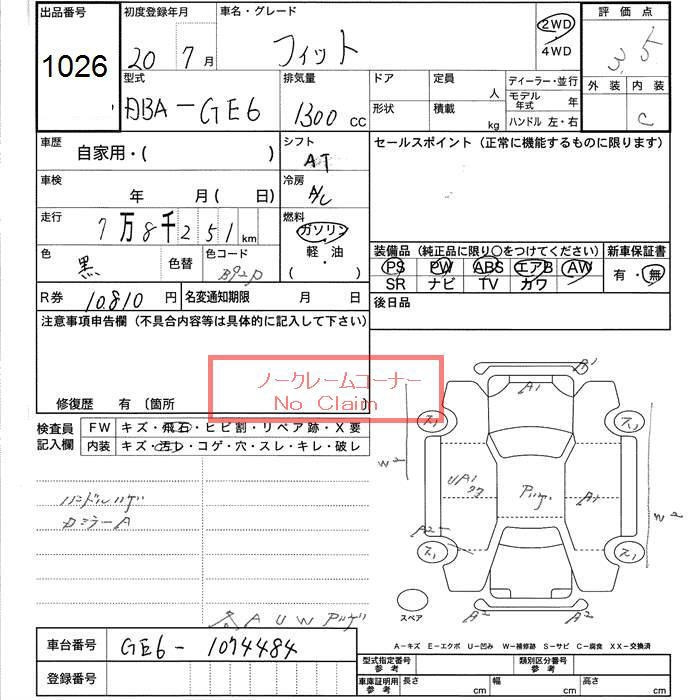 出品番号 初度登録年月 車名・グレード 評価点
1026 20 7月 フィット 2WD 4WD 3.5
外装 内装
C
型式 排気量 ドア 定員 人 ディーラー・並行
DBA-GE6 1300 CC 形状 積載 kg モデル年式 年
ハンドル 左・右
車歴 自家用・( ) シフト AT セールスポイント (正常に機能するものに限ります)
車検 年 月( 日) 冷房 A/C
走行 7万8千251km 燃料 ガソリン
軽・油
( ・ )
色 黒 色替 色コード B92P
装備品 (純正品に限り○をつけてください) 新車保証書
PS PW ABS エアB AW 有・無
SR ナビ TV カワ
R券 10810円 名変通知期限 月 日 後日品
注意事項申告欄 (不具合内容等は具体的に記入して下さい)
ノークレームコーナー
No Claim
修復歴 有 〔箇所 〕
検査員記入欄 FW キズ・飛石・ヒビ割・リペア跡・X要
内装 キズ・汚レ・コゲ・穴・スレ・キレ・破レ
ハンドルハゲ
カミラーA
A U W アリ
A1
A1
ス1 ス1
W2 UA1 A1 W2
ス1 ス1
A2 A2
スペア
A-キズ E-エクボ U-凹み W-補修跡 S-サビ C-腐食 XX-交換済
車台番号 GE6-1074484
登録番号
型式指定番号 参考 類別区分番号 参考
車庫証明用 参考 長さ cm 幅 cm 高さ cm